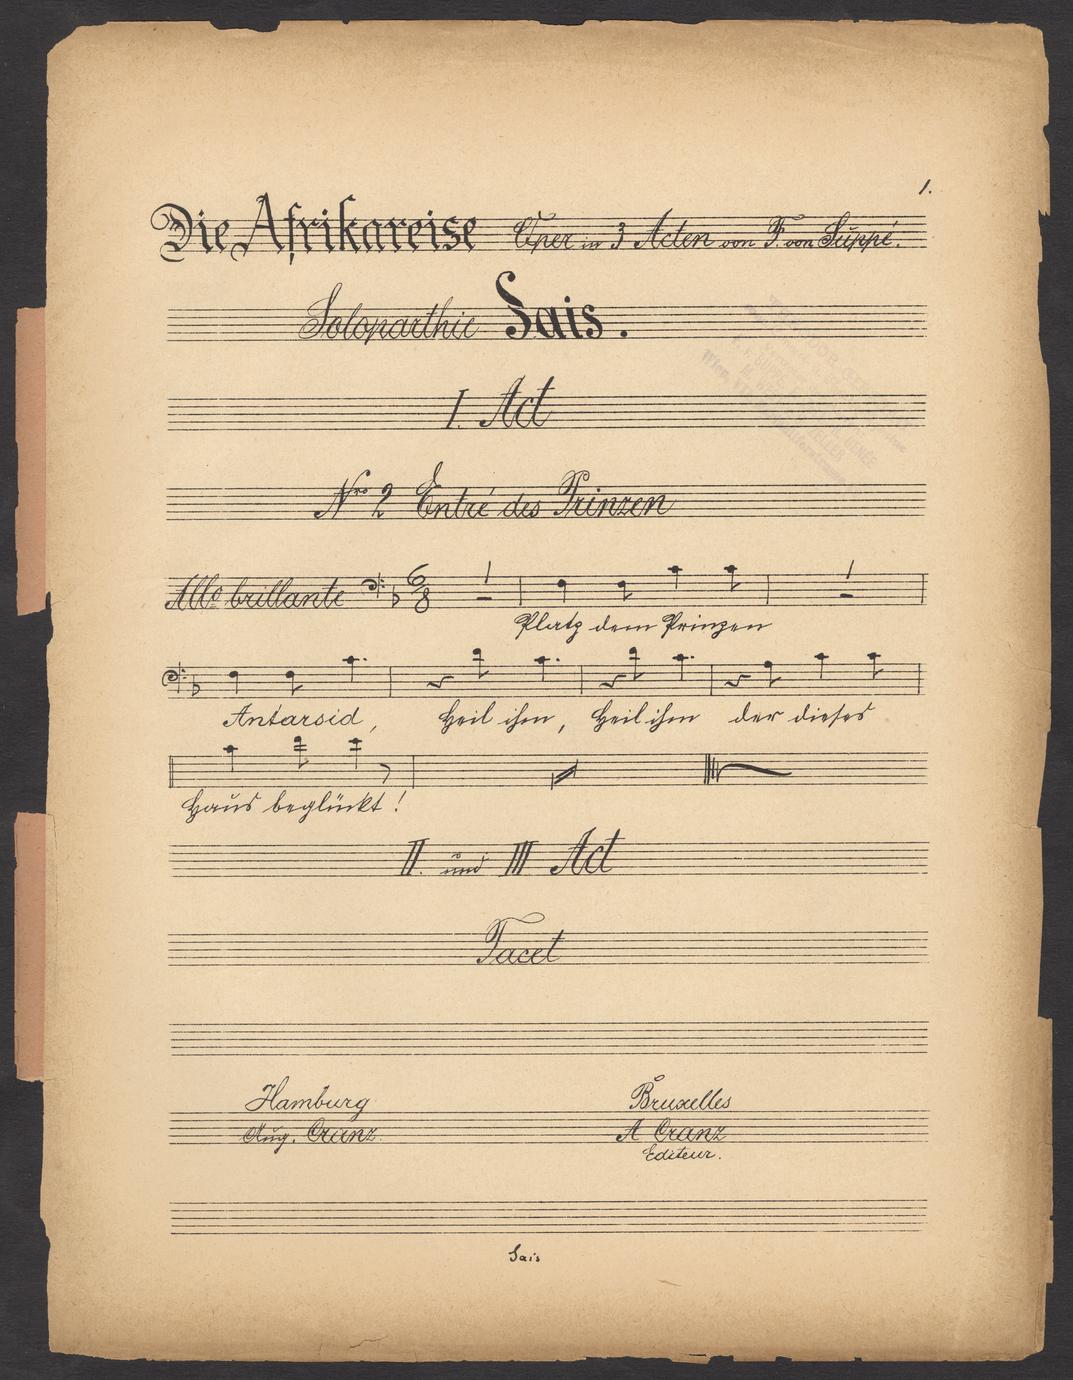 1.
Die Afrikareise Oper in 3 Acten von F. von Suppé.
Soloparthie Sais.
I. Act
Nro 2 Entré des Prinzen
Allo brillante 6/8 1 1
Platz dem Prinzen
Antarsid, Heil ihm, Heil ihm der dieses
Haus beglückt!
II. und III Act
Tacet
Hamburg Bruxelles
Aug. Cranz. A Cranz
Editeur.
Sais